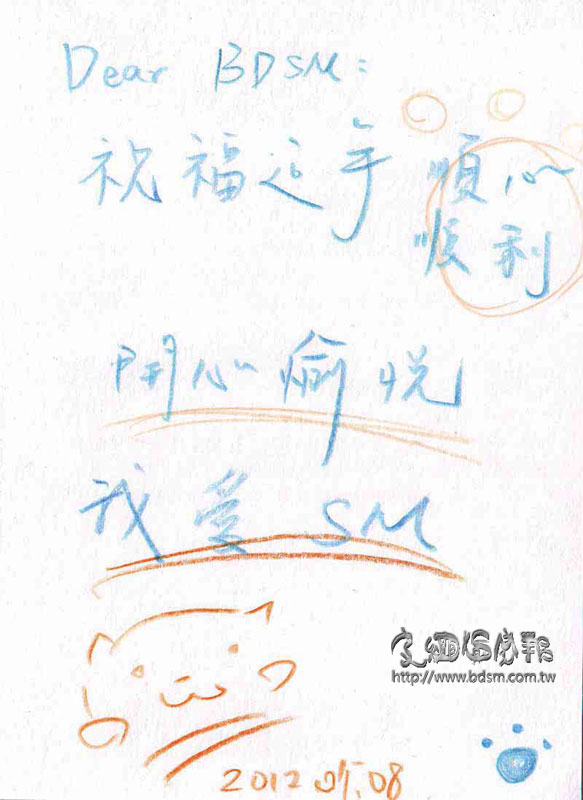 Dear BDSM:
祝福這年 順心
順利
開心愉悅
我愛 SM
http://www.bdsm.com.tw
2012 05.08